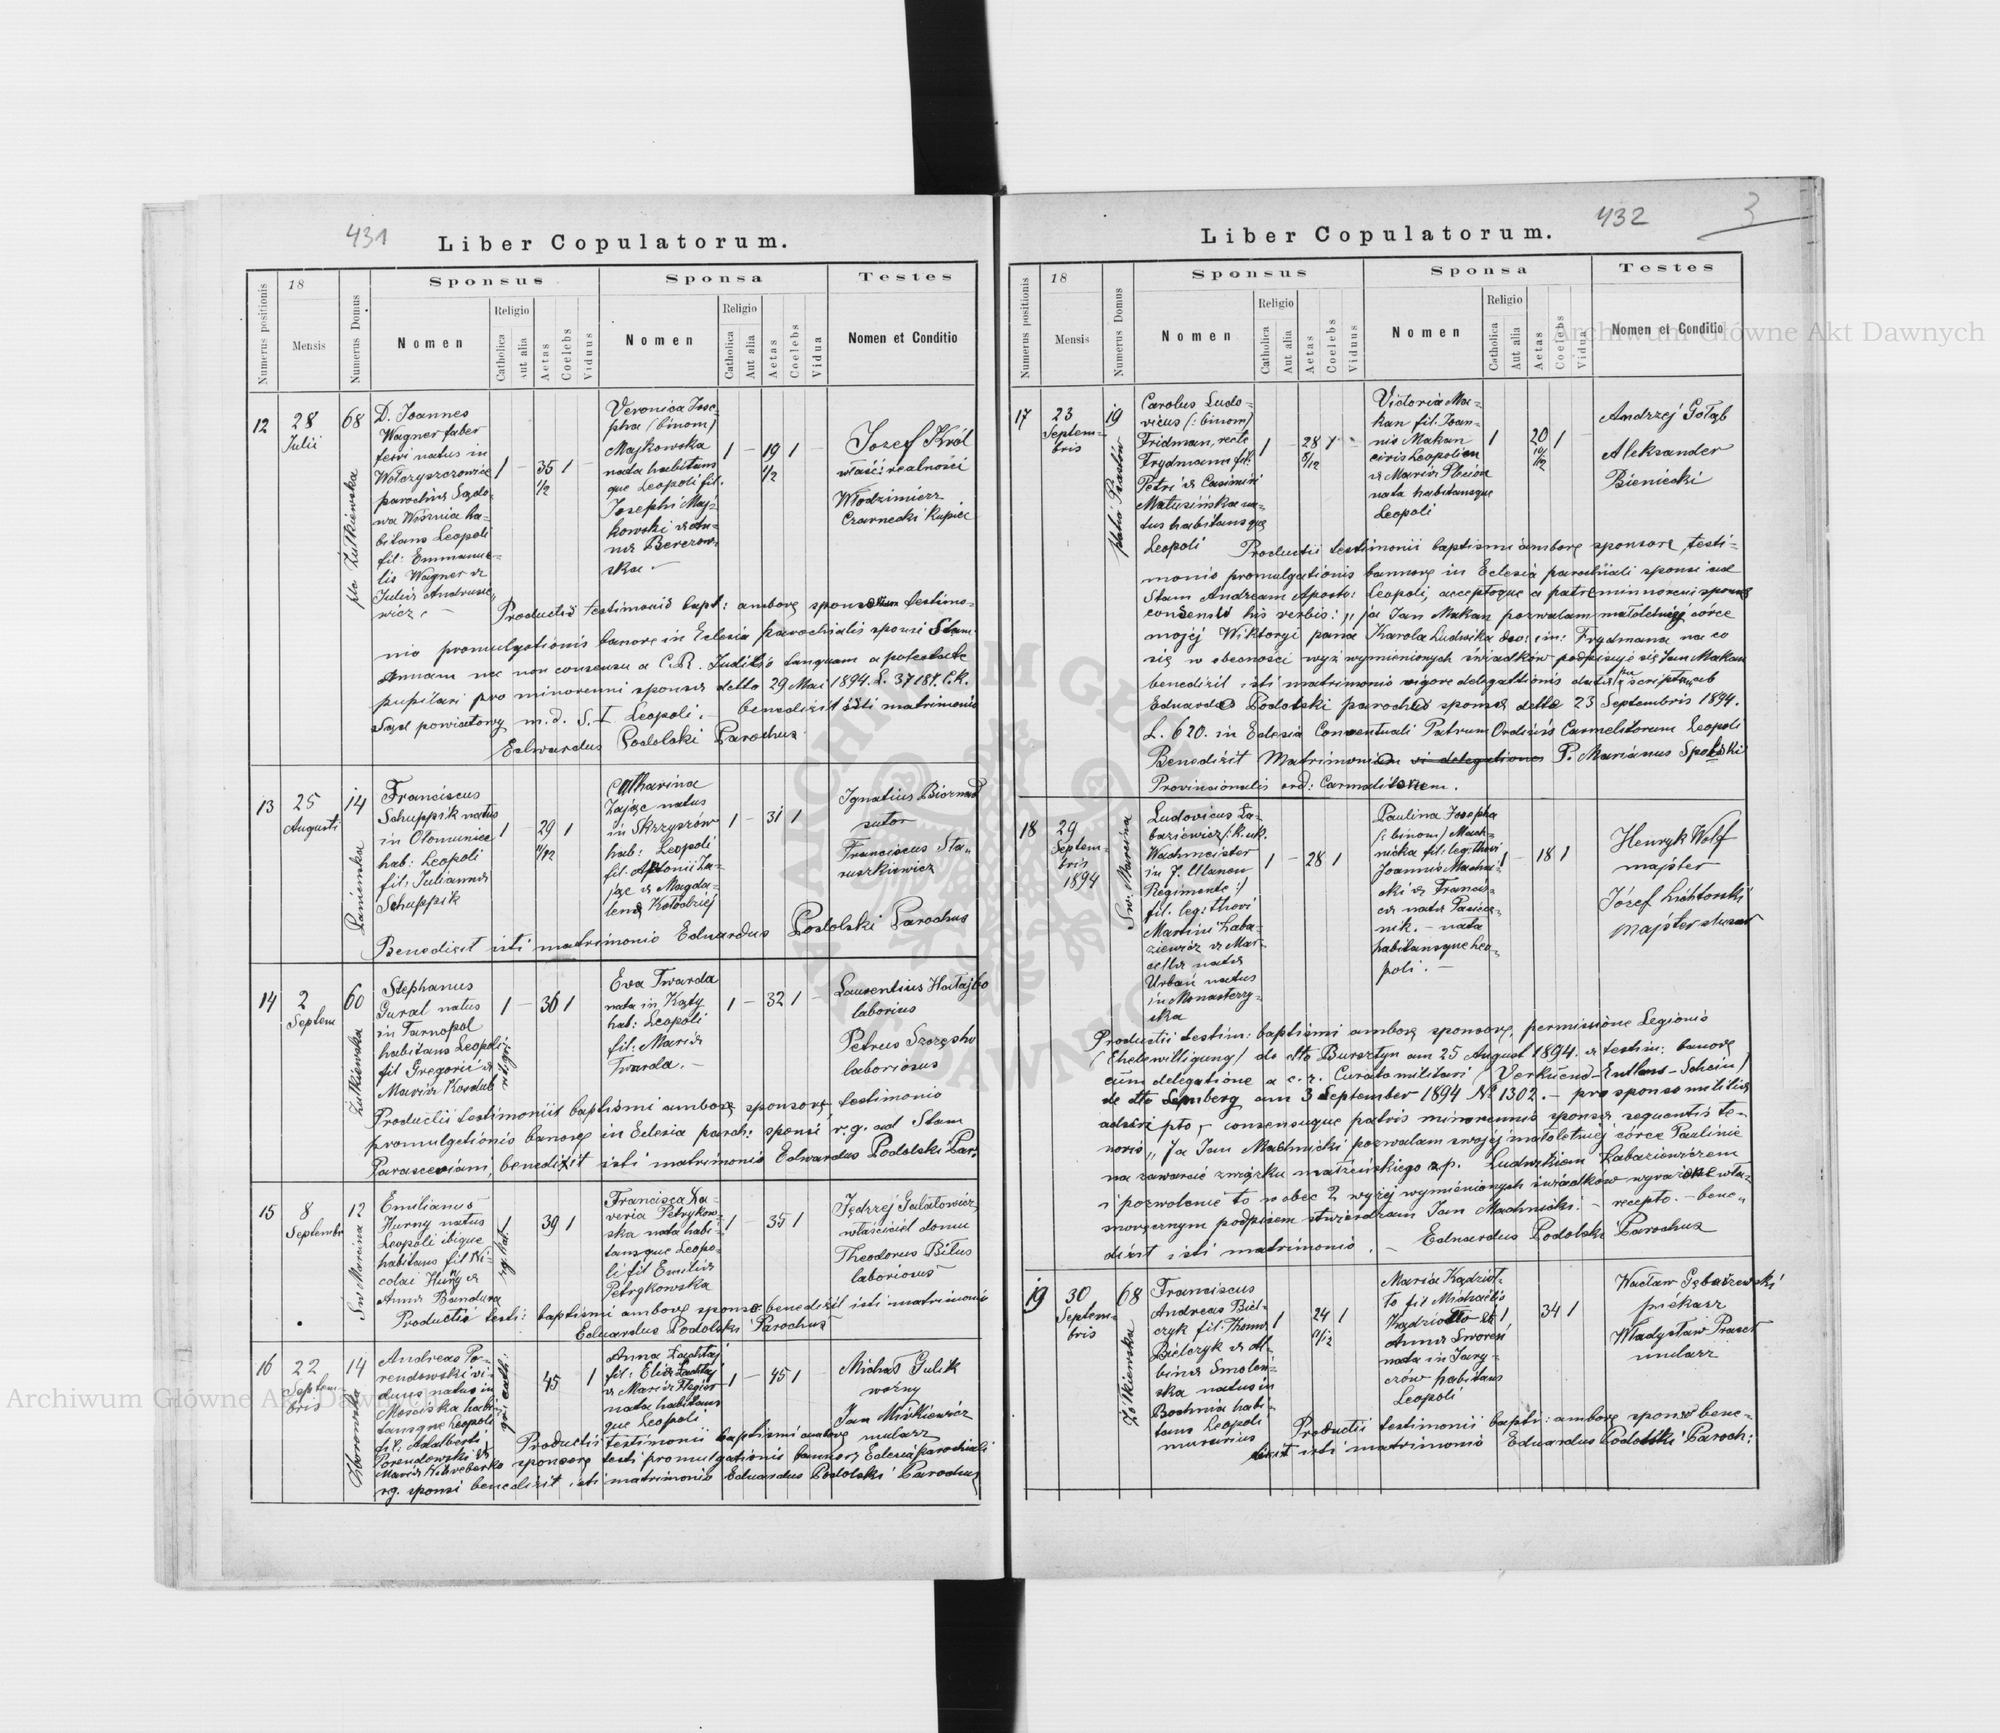 431
Liber Copulatorum.
Numerus positionis
18
Mensis
Numerus Domus
Sponsus
Nomen
Religio
Catholica
Aut alia
Aetas
Coelebs
Viduus
Sponsa
Nomen
Religio
Catholica
Aut alia
Aetas
Coelebs
Vidua
Testes
Nomen et Conditio
12
28
Julii
68
pla Żulkiewska
D. Joannes
Wagner faber
ferri natus in
parochia Sądo-
wa Wisznia ha-
bitans Leopoli
fil: Emmanue-
lis Wagner &
Julia Andrusie-
wicz. —
1 — 35 1
1/2
Veronica Jose-
pha (binom)
Majkowska
nata habitans
que Leopoli fil.
Josephi Maj-
kowski & An-
na Berezow-
ska —
1 — 19 1 —
1/2
Jozef Król
właści: realności
Włodzimierz
Czarnecki Kupiec
Productis testimoniis bapt: amborum sponsorum testimo-
nio promulgationis banorum in Eclesia parochialis sponsi Stam
Annam nec non consensu a C.R. Judicio tanquam a potestate
pupilari pro minorenni sponsa detto 29 Mai 1894. L. 37187. C.K.
Sąd powiatowy m.d. S. I Leopoli. benedixit isti matrimonio
Edwardus Podolski Parochus
13
25
Augusti
14
Panieńska
Franciscus
Schuppik natus
in Ołomuniec
hab: Leopoli
fil: Julianna
Schuppik
1 — 29 1
11/12
Catharina
Zając natus
in Skrzyszów
hab: Leopoli
fil: Antonii Za-
jąc & Magda-
lena Kołodziej
1 — 31 1
Ignatius Biernad
sutor
Franciscus Sta-
ruszkiewicz
Benedixit isti matrimonio Eduardus Podolski Parochus
14
2
Septem
60
Żulkiewska
Stephanus
Gural natus
in Tarnopol
habitans Leopoli
fil Gregorii &
Maria Kosdub
1 — 36 1
Eva Twarda
nata in Kąty
hab: Leopoli
fil: Maria
Twarda. —
1 — 32 1 —
laborius
Petrus Szczęsho
laboriosus
Productii testimoniis baptismi amborum sponsorum testimonio
promulgationis banorum in Eclesia paroch: sponsi r.g. ad Stam
Parasceviam, benedixit isti matrimonio Edwardus Podolski Par:
15
8
Septembr
12
Sw Marcina
Emilianus
Hurny natus
Leopoli ibique
habitans fil Ni-
colai Hurny &
Anna Bandura
rg. kat. 1
39 1
Francisca Xa-
veria Petrykow-
ska nata habi-
tansque Leopo-
li fil Emilia
Petrykowska
1 — 35 1
Jędrzej Galatowicz
właściciel domu
Theodorus Bilus
laboriosus
Productis testi: baptismi amborum sponso: benedixit isti matrimonio
Eduardus Podolski Parochus
16
22
Septem-
bris
14
Zborowska
Andreas Po-
rendowski vi-
duus natus in
Mościska habi-
tansque Leopoli
fil. Adalberti
Porendowski &
rg. sponsi benedixit isti matrimonio Eduardus Podolski Parochus
gr: cath:
45 1
Anna Lachtaj
fil: Elia Lachtaj
nata habitans
que Leopoli
1 — 45 1
Michał Gulik
woźny
Jan Mirkiewicz
mularz
Productis testimonii baptismi amborum
sponsorum testi promulgationis bannor Eclesia parochiali
432
3
Liber Copulatorum.
Numerus positionis
18
Mensis
Numerus Domus
Sponsus
Nomen
Religio
Catholica
Aut alia
Aetas
Coelebs
Viduus
Sponsa
Nomen
Religio
Catholica
Aut alia
Aetas
Coelebs
Vidua
Testes
Nomen et Conditio
17
23
Septem-
bris
19
Carolus Ludo-
vicus (: binom)
Fridman, recte
Frydmann fil:
Petri & Casimiri
Matusińska na-
tus habitansque
Leopoli
1 — 28 1 -
8/12
Victoria Ma-
kan fil. Joan-
nis Makan
civis Leopolien
nata habitansque
Leopoli
1
20 1
10/12
Andrzej Gołąb
Aleksander
Bieniecki
Productii testimonii baptismi amborum sponsore, testi-
monio promulgationis bannorum in Eclesia parochiali sponsi ad
Stam Andream Aposto: Leopoli, acceptoque a patre minnoreni sponsa
consensu his verbis: „ja Jan Makan pozwalam małoletniej córce
mojej Wiktoryi pana Karola Ludwika dwo: im: Frydmana na co
się w obecności wyż wymienionych świadków podpisuję się Jan Makan
benedixit isti matrimonio vigore delegationis data scripta, ab
Eduardo Podolski parocho sponsa detto 23 Septembris 1894.
L. 620. in Eclesia Conventuali Patrum Ordinis Carmelitorum Leopoli
Benedixit Matrimonium vi delegationes P. Marianus Spolski
Provincionalis ord: Carmelitorum.
18
29
Septem-
bris
1894
Sw. Marcina
Ludovicus Ła-
baziewicz /: k. uk.
Wachmeister
in 7. Ulanen
Regimente :/
fil. leg: thori
Martini Łaba-
ziewicz & Mar-
cella nata
Urban natus
in Monasterzy-
ska
1 — 28 1
Paulina Josepha
(: binom) Mach-
nicka fil: leg: thori
Joannis Machni-
cki & Francis-
ca nata Pasiecz-
nik. — nata
habitansque Leo-
poli. —
1 — 18 1
Henryk Wolf
majster
Józef Lichtorski
majster
Productii testim: baptismi amborum sponsorum, permissione Legionis
(Ehelewilligung) de dto Bursztyn am 25 August 1894. & testim: banorum
cum delegatione a c. r. Curato militari (Verkünd-Entlass-Schein)
de dto Lemberg am 3 September 1894 № 1302. — pro sponso militia
adscripto, consensuque patris minorennis sponsa sequentis te-
noris „Ja Jan Machnicki pozwalam swojej małoletniej córce Paulinie
na zawarcie związku małżeńskiego z p. Ludwikiem Łabaziewiczem
i pozwolenie to w obec 2 wyżej wymienionych świadków wyrażone wła-
snoręcznym podpisem stwierdzam Jan Machnicki. — recepto. — bene-
dixit isti matrimonio. — Eduardus Podolski Parochus
19
30
Septem-
bris
68
Żółkiewska
Franciscus
Andreas Biel-
czyk fil. Thoma
Bielczyk & Al-
bina Smoleń-
ska natus in
Bochnia habi-
tans Leopoli
murarius
1
24 1
11/12
Maria Kądzioł-
Anna Sworeń
nata in Jary-
czów habitans
Leopoli
34 1
piekarz
mularz
Productii testimonii bapti: amborum sponso bene-
dixit isti matrimonio Eduardus Podolski Paroch:
Archiwum Główne Akt Dawnych
Archiwum Główne Akt Dawnych